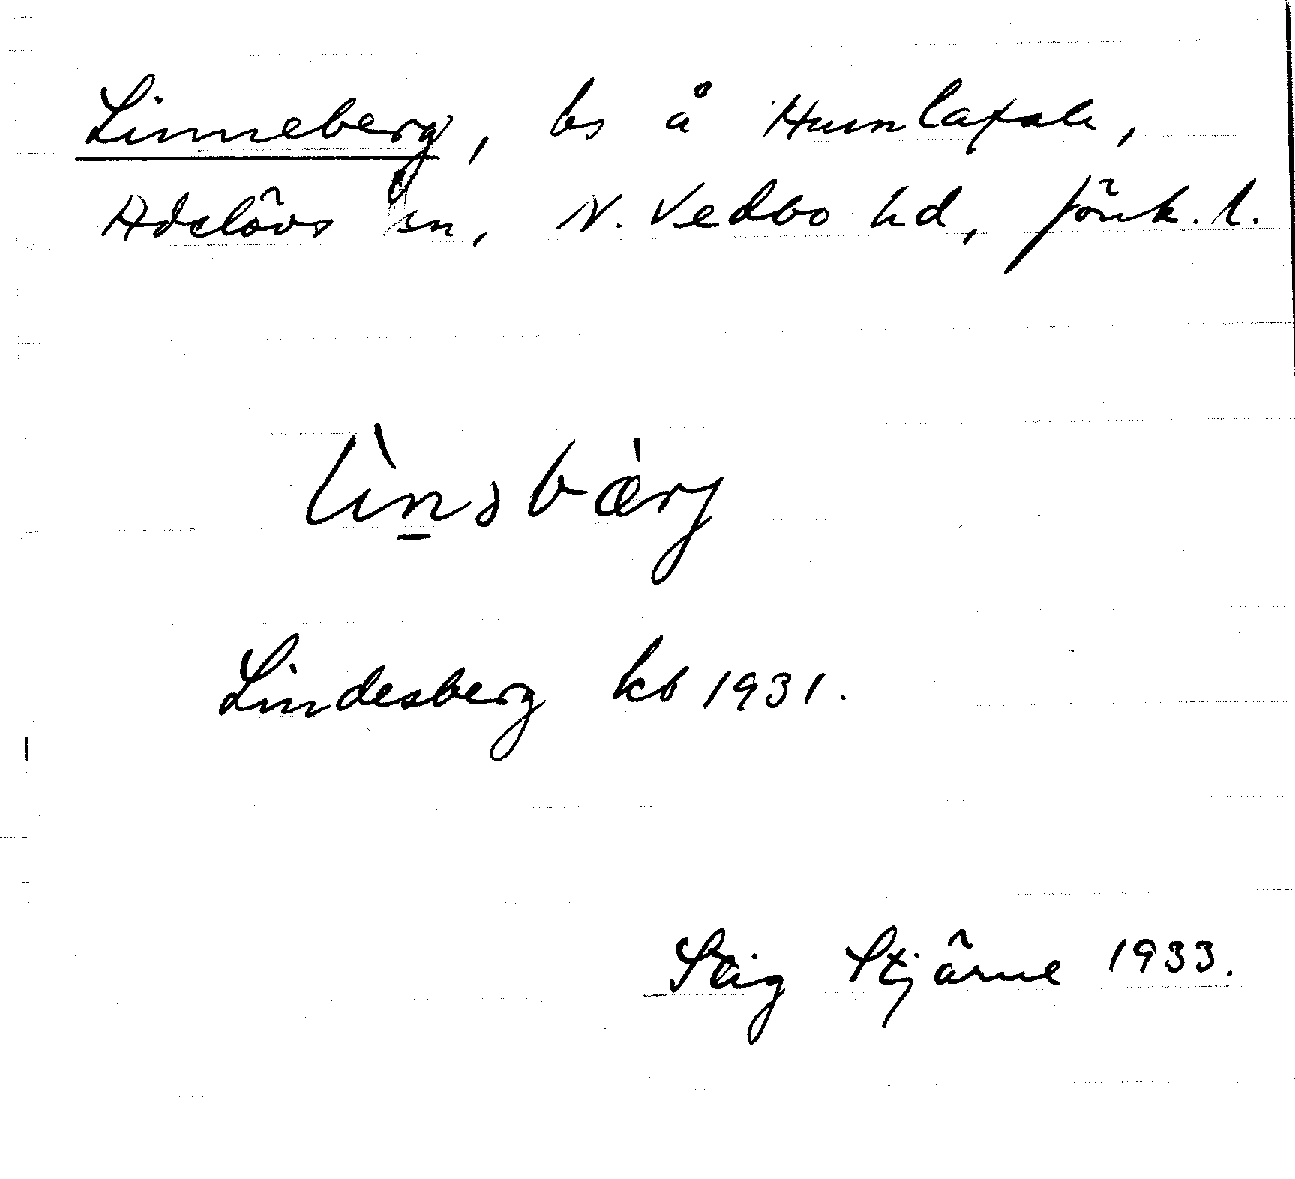 Linneberg, bs å Humlaxsle,
Adelövs sn, N. Vedbo hd, Jönk. l.
lìnsbær̀j
Lindesberg kb 1931.
Stig Stjärne 1933.